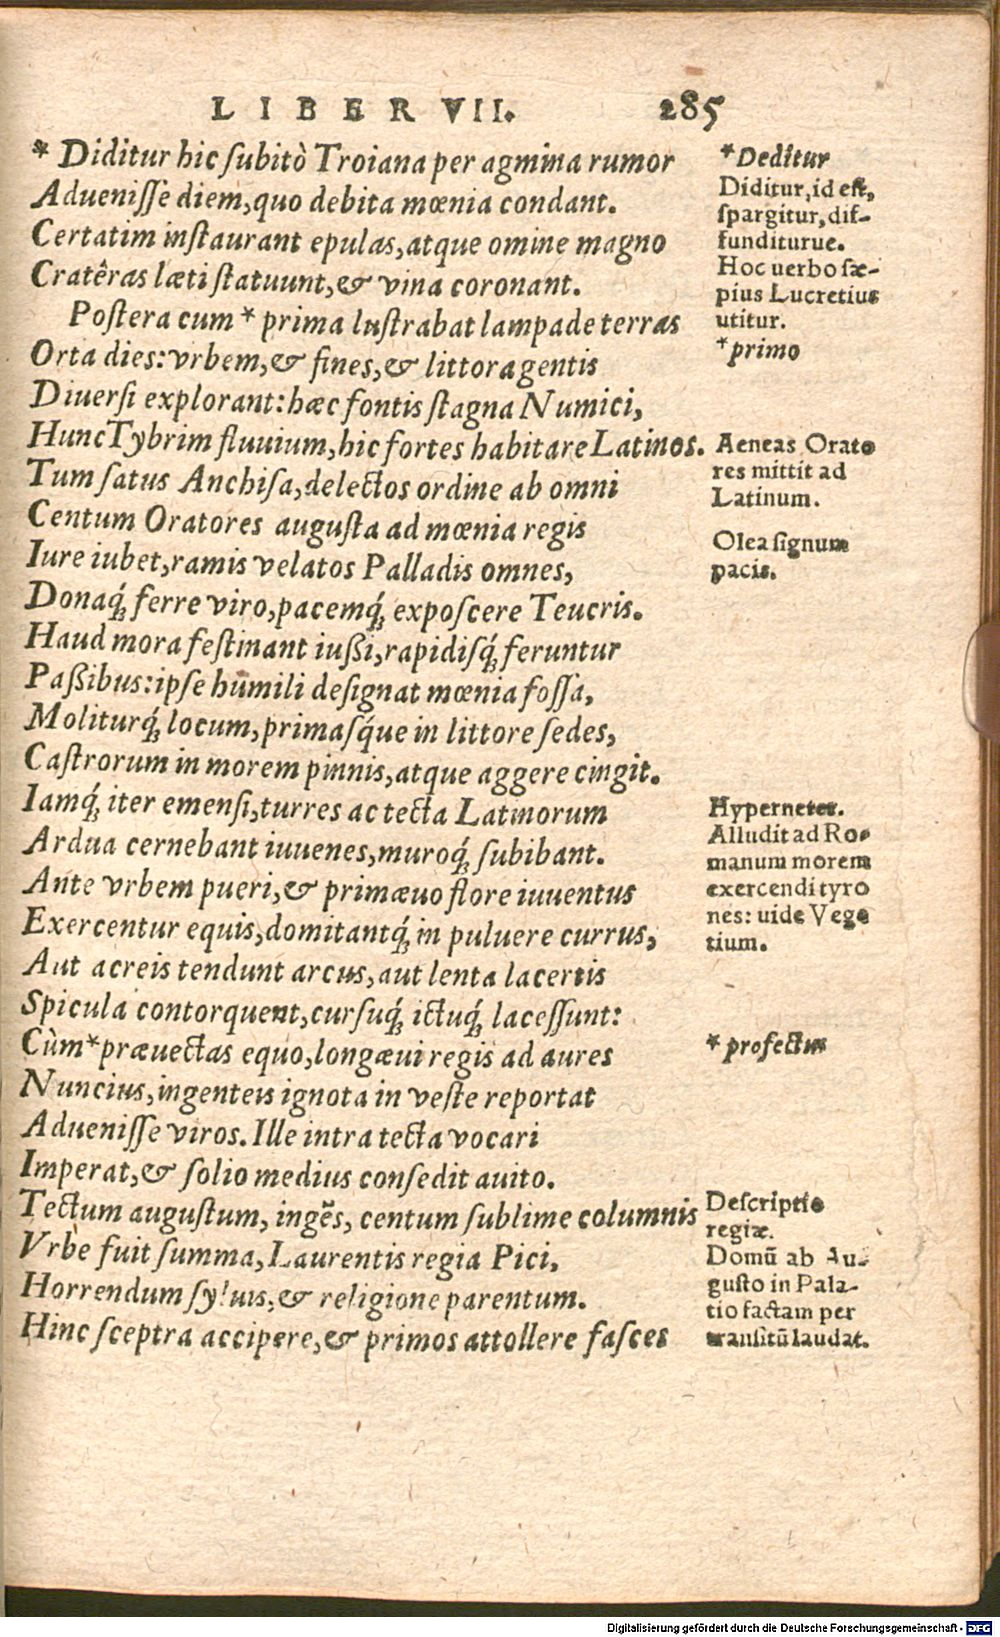 LIBER VII. 285
* Diditur hic ſubitò Troiana per agmina rumor
Adueniſſe diem, quo debita mœnia condant.
Certatim inſtaurant epulas, atque omine magno
Cratêras læti ſtatuunt, & vina coronant.
Poſtera cum * prima luſtrabat lampade terras
Orta dies: vrbem, & fines, & littora gentis
Diuerſi explorant: hæc fontis ſtagna Numici,
Hunc Tybrim fluuium, hic fortes habitare Latinos.
Tum ſatus Anchiſa, delectos ordine ab omni
Centum Oratores auguſta ad mœnia regis
Iure iubet, ramis velatos Palladis omnes,
Donaq́; ferre viro, pacemq́; expoſcere Teucris.
Haud mora feſtinant iußi, rapidiſq́; feruntur
Paßibus: ipſe humili deſignat mœnia foſſa,
Moliturq́; locum, primaſq́ue in littore ſedes,
Caſtrorum in morem pinnis, atque aggere cingit.
Iamq́; iter emenſi, turres ac tecta Latinorum
Ardua cernebant iuuenes, muroq́; ſubibant.
Ante vrbem pueri, & primæuo flore iuuentus
Exercentur equis, domitantq́; in puluere currus,
Aut acreis tendunt arcus, aut lenta lacertis
Spicula contorquent, curſuq́; ictuq́; laceſſunt:
Cùm * præuectas equo, longæui regis ad aures
Nuncius, ingenteis ignota in veſte reportat
Adueniſſe viros. Ille intra tecta vocari
Imperat, & ſolio medius conſedit auito.
Tectum auguſtum, ingẽs, centum ſublime columnis
Vrbe fuit ſumma, Laurentis regia Pici,
Horrendum ſyluis, & religione parentum.
Hinc ſceptra accipere, & primos attollere faſces
* Deditur
Diditur, id eſt,
ſpargitur, dif-
funditurue.
Hoc uerbo ſæ-
pius Lucretius
utitur.
* primo
Aeneas Orato
res mittit ad
Latinum.
Olea ſignum
pacis.
Hypernetes.
Alludit ad Ro-
manum morem
exercendi tyro
nes: uide Vege
tium.
* profectus
Deſcriptio
regiæ.
Domũ ab Au-
guſto in Pala-
tio factam per
tranſitũ laudat.
Digitalisierung gefördert durch die Deutsche Forschungsgemeinschaft - DFG